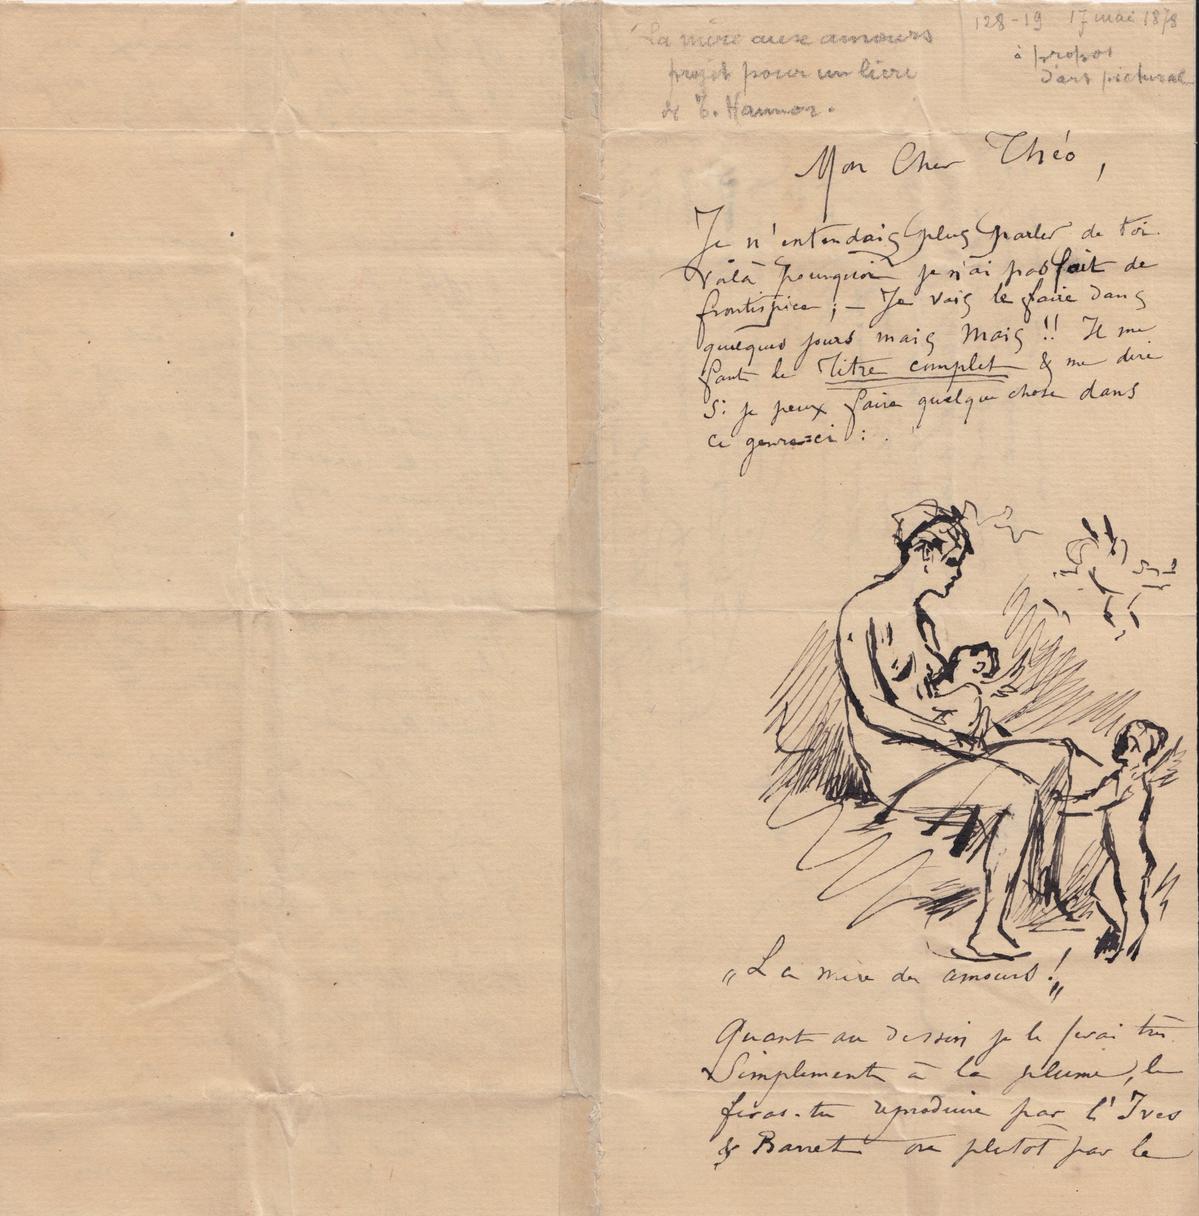 La mère aux amours
projet pour un livre
de T. Hannon.
128-19 17 mai 1878
à propos
d'art pictural
Mon Cher Théo,
Je n'entendais plus parler de toi.
Voilà pourquoi je n'ai pas fait de
frontispice ; — Je vais le faire dans
quelques jours mais Mais !! Il me
faut le Titre complet & me dire
si je peux faire quelque chose dans
ce genre-ci :
„La mère des amours!„
Quant au dessin je le ferai très
Simplement à la plume, le
feras-tu reproduire par l'Yves
& Barret ou plutôt par le